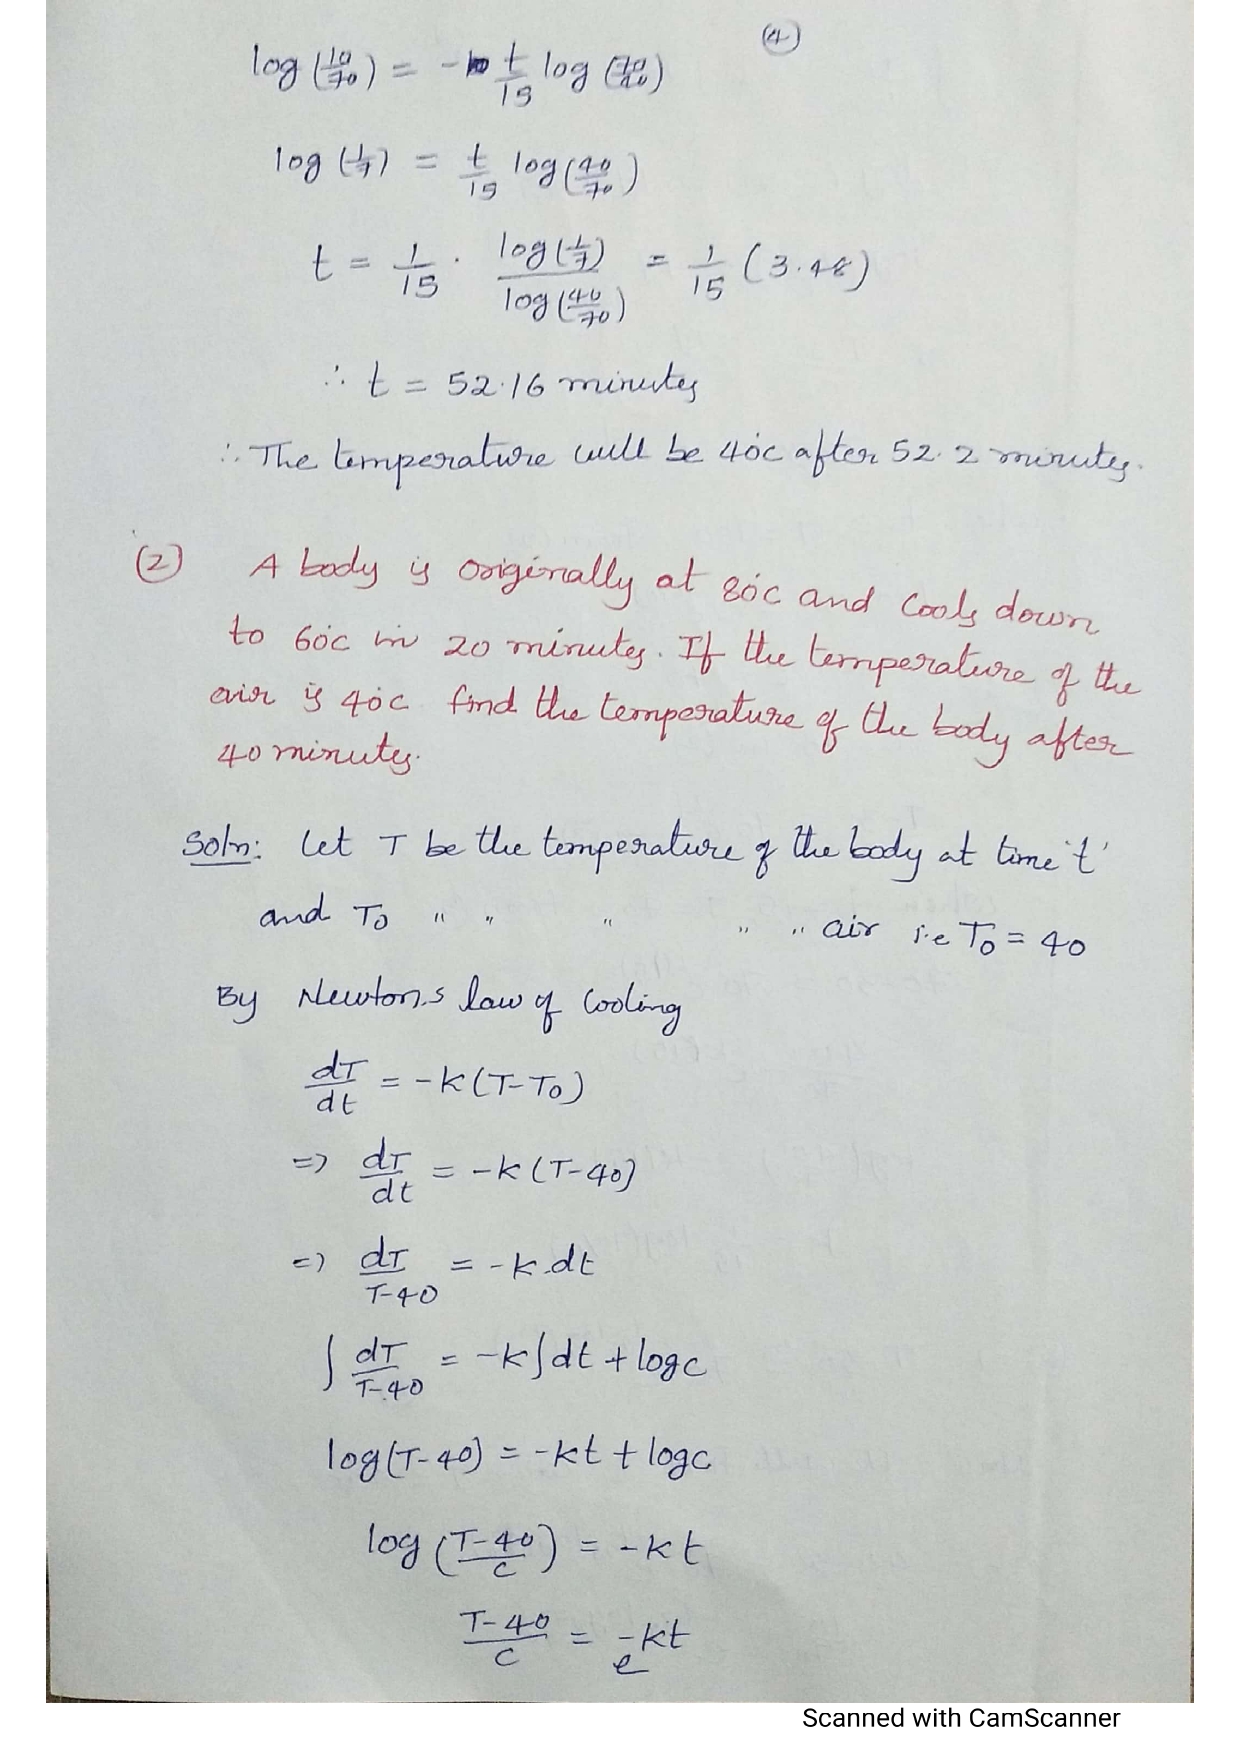 (4)
log (10/70) = - t/15 log (70/40)
log (1/7) = t/15 log (40/70)
t = 1/15 . log (1/7) / log (40/70) = 1/15 (3.48)
∴ t = 52.16 minutes
∴ The temperature will be 40°c after 52.2 minutes.
(2) A body is originally at 80°c and cools down
to 60°c in 20 minutes. If the temperature of the
air is 40°c find the temperature of the body after
40 minutes.
Soln: Let T be the temperature of the body at time 't'
and T0 " " " " " air i.e T0 = 40
By Newton's law of cooling
dT/dt = -k (T-T0)
=> dT/dt = -k (T-40)
=> dT/T-40 = -k.dt
∫ dT/T-40 = -k∫dt + logc
log (T-40) = -kt + logc
log (T-40/c) = -kt
T-40/c = e^-kt
Scanned with CamScanner